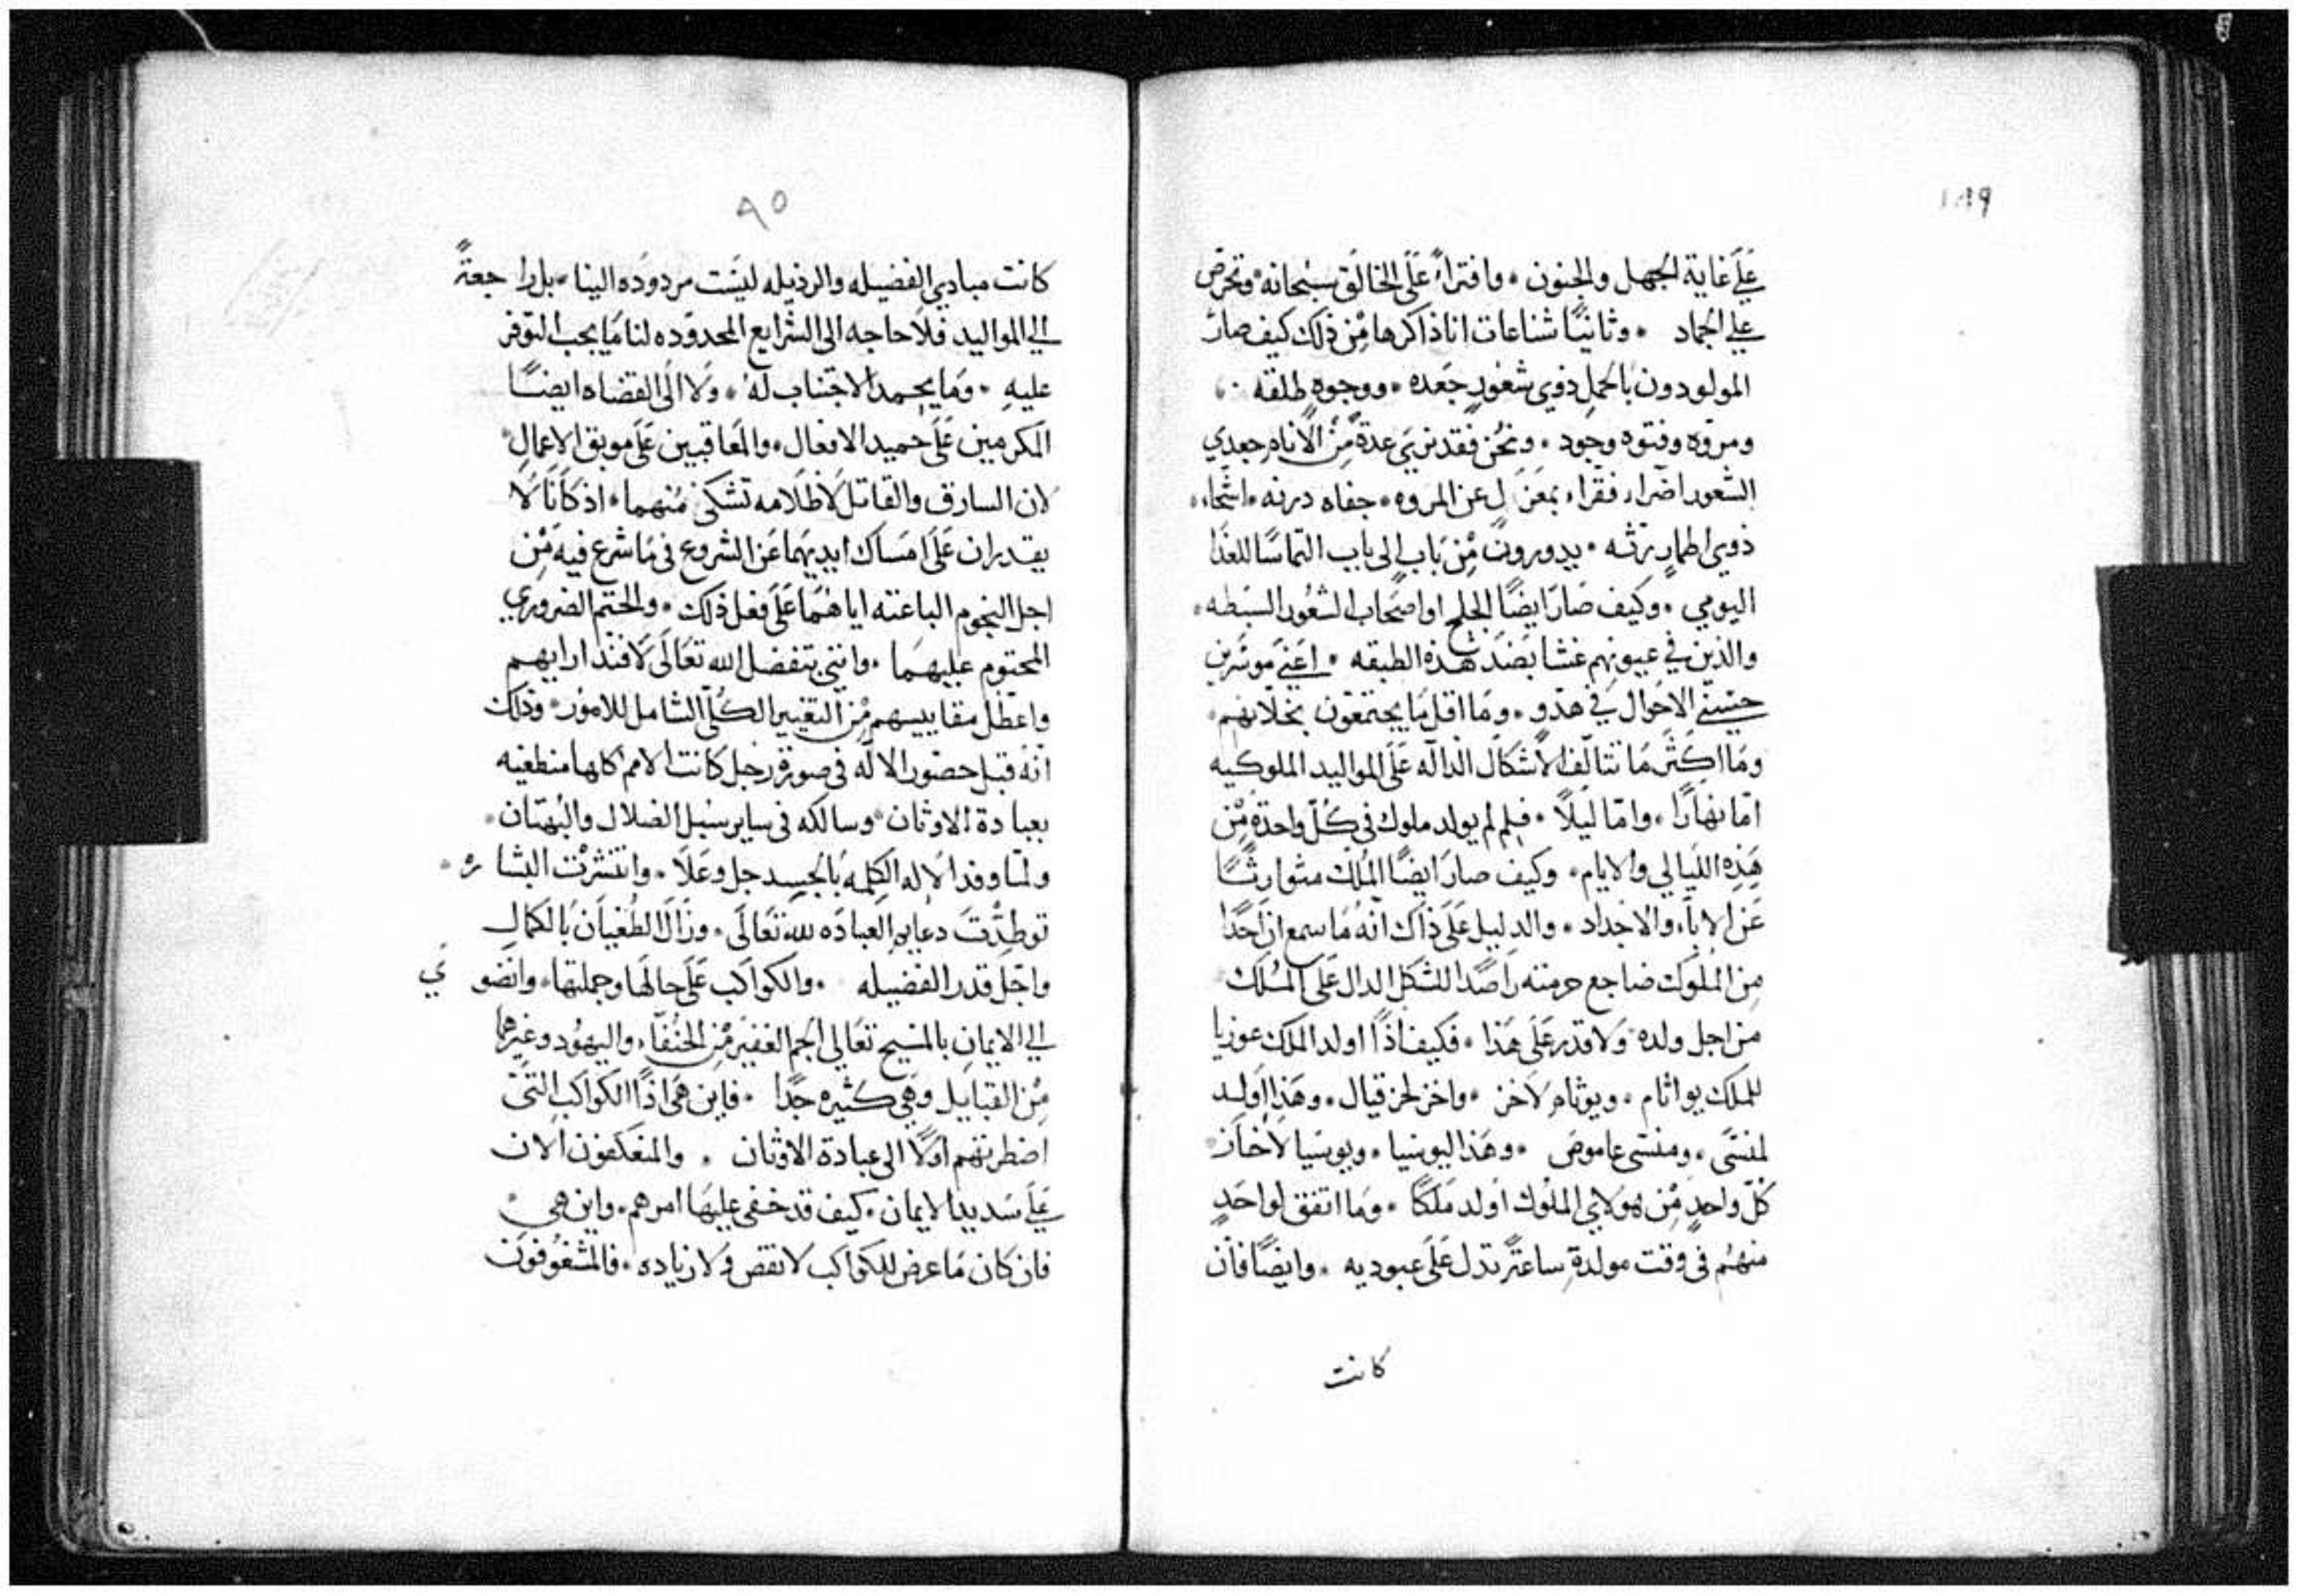 على غاية الجهل والجنون • وافتراءً على الخالق سبحانه • وتخرّص
على الجماد • وثانيًا شناعات انا ذاكرها من ذلك كيف صار
المولودون بالحمل ذوي شعورٍ جعده • ووجوهٍ طلقه •
ومروّه وفتوه وجود • ونحن فقد نرى عدةً من الانام جعدي
الشعور اضراء فقراء بمعزل عن المروه • جفاه درنه • اشحاء •
ذوي اطمارٍ رثه • يدورون من باب الى باب التماسًا للغذا
اليومي • وكيف صار ايضًا الجلح او اصحاب الشعور السبطه •
والذين في عيونهم غشا بضد هذه الطبقه • اعني موسرين
حسني الاحوال في هدو • وما اقل ما يجتمعون بخلانهم •
وما اكثر ما تتالف الاشكال الداله على المواليد الملوكيه
امّا نهارًا • وامّا ليلاً • فلم لم يولد ملوك في كلّ واحدة من
هذه الليالي والايام • وكيف صار ايضًا الملك متوارثًا
عن الاباء والاجداد • والدليل على ذاك انّه ما سمع ان احدًا
من الملوك ضاجع حرمته راصدًا للشكل الدال على الملك
من اجل ولده ولا قدر على هذا • فكيف اذًا اولد الملك عوزيا
للملك يواثام • ويوثام لاخز • واخز لحزقيال • وهذا اولد
لمنسّى • ومنسى عاموص • وهذا ليوسيا • ويوسيا لاخاز
كلّ واحدٍ من هولاي الملوك اولد ملكًا • وما اتفق لواحدٍ
منهم في وقت مولدةٍ ساعةً تدل على عبوديه • وايضًا فان
كانت
٩٥
كانت مبادي الفضيله والرذيله ليست مردوده الينا • بل راجعةً
الى المواليد فلا حاجه الى الشرايع المحدوده لنا ما يجب التوفر
عليه • وما يحمد الاجتناب له • ولا الى القضاه ايضًا
المكرمين على حميد الافعال • والمعاقبين على موبق الاعمال •
لان السارق والقاتل لا ظلامه تشكى منهما • اذ كانا لا
يقدران على امساك ايديهما عن الشروع في ما شرع فيه من
اجل النجوم الباعثه اياهما على فعل ذلك • والحتم الضروري
المحتوم عليهما • وانني بتفضل الله تعالى لافنّد ارايهم
واعطّل مقاييسهم من التغيير الكلّي الشامل للامور • وذلك
انّه قبل حضور الاله في صورة رجل كانت الامم كلها منطغيه
بعبادة الاوثان • وسالكه في ساير سبل الضلال والبهتان •
ولمّا وفد الاله الكلمه بالجسد جل وعلا • وانتشرت البشائر •
توطدت دعايم العباده لله تعالى • وزال الطغيان بالكمال
واجّل قدر الفضيله • والكواكب على حالها وجملتها • وانضوى
الى الايمان بالمسيح تعالى الجم الغفير من الحنفاء • واليهود وغيرهما
من القبايل وهي كثيره جدًا • فاين هى اذًا الكواكب التى
اضطرتهم اولًا الى عبادة الاوثان • والمنعكفون الان
على سديد الايمان • كيف قد خفي عليها امرهم • واين هي •
فان كان ما عرض للكواكب لا نقص ولا زياده • فالمشغوفون